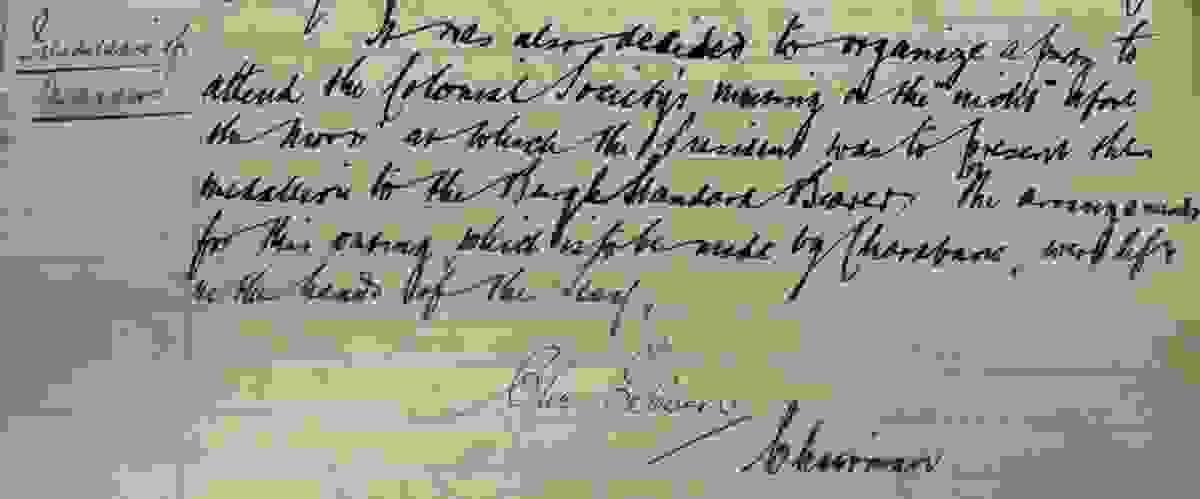 of
It was also decided to organize a party to
attend the Colonial Society's meeting on the "night afore
the Morn" at which the President was to present the
medallion to the Burgh Standard Bearer. The arrangements
for this outing, which is to be made by Charabanc, were left
in the hands of the Secy.
Chairman